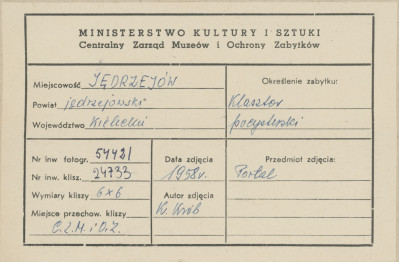 MINISTERSTWO KULTURY I SZTUKI
Centralny Zarząd Muzeów i Ochrony Zabytków
Miejscowość JĘDRZEJÓW
Powiat jędrzejowski
Województwo Kielecki
Określenie zabytku:
Klasztor
pocysterski
Nr inw fotogr. 54421
Nr inw. klisz. 24733
Wymiary kliszy 6x6
Miejsce przechow. kliszy
C.Z.M. i O.Z.
Data zdjęcia
1958r.
Autor zdjęcia
K. Król
Przedmiot zdjęcia:
Portal